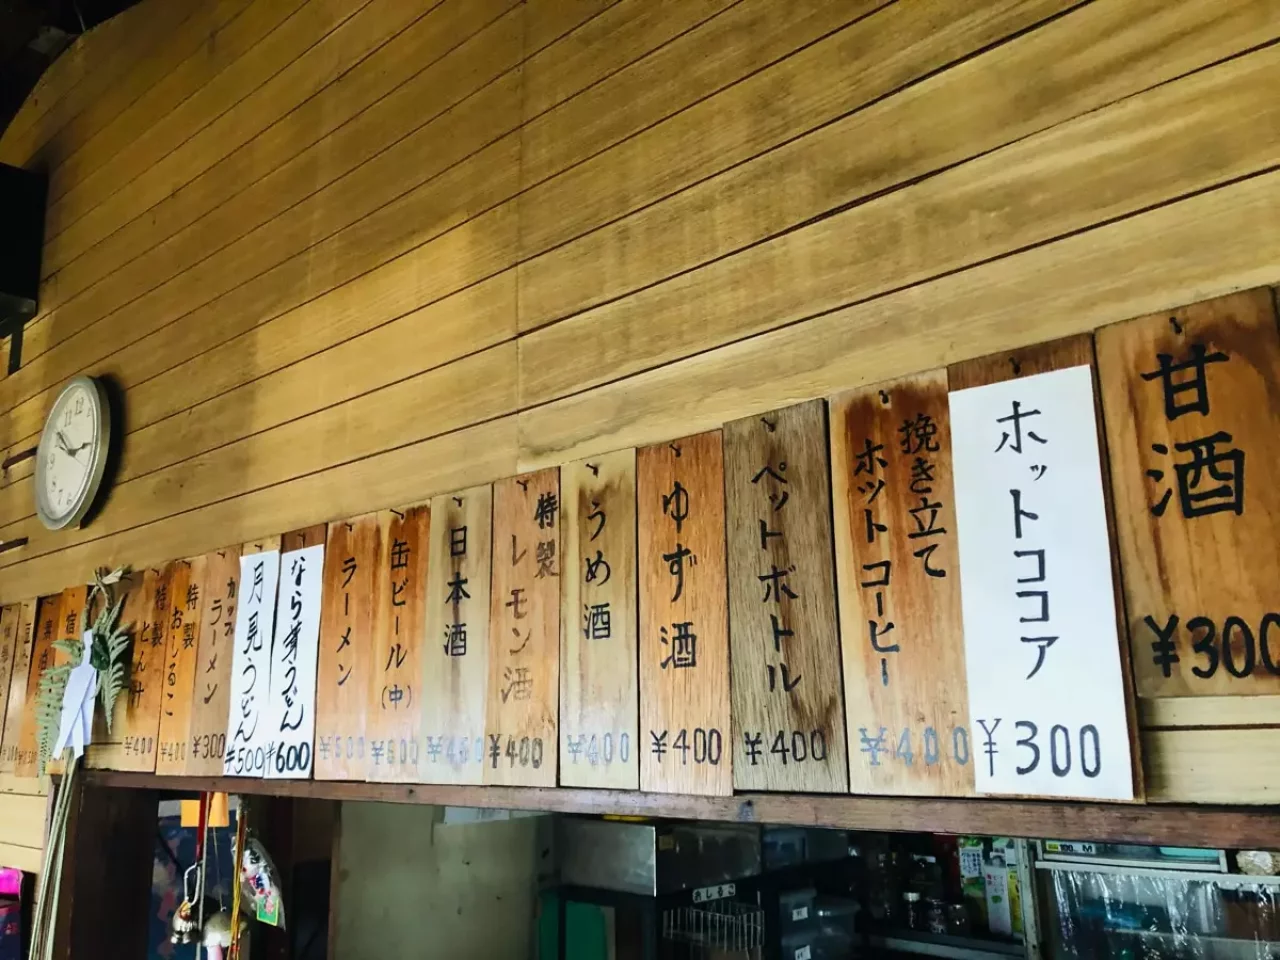 甘酒
¥300
ホットココア
¥300
挽き立て
ホットコーヒー
¥400
ペットボトル
¥400
ゆず酒
¥400
うめ酒
¥400
特製
レモン酒
¥400
日本酒
缶ビール
(中)
ラーメン
¥500
なら芽うどん
¥600
月見うどん
¥500
カップ
ラーメン
¥300
特製
おしるこ
¥400
特製
とん汁
¥400
おしるこ